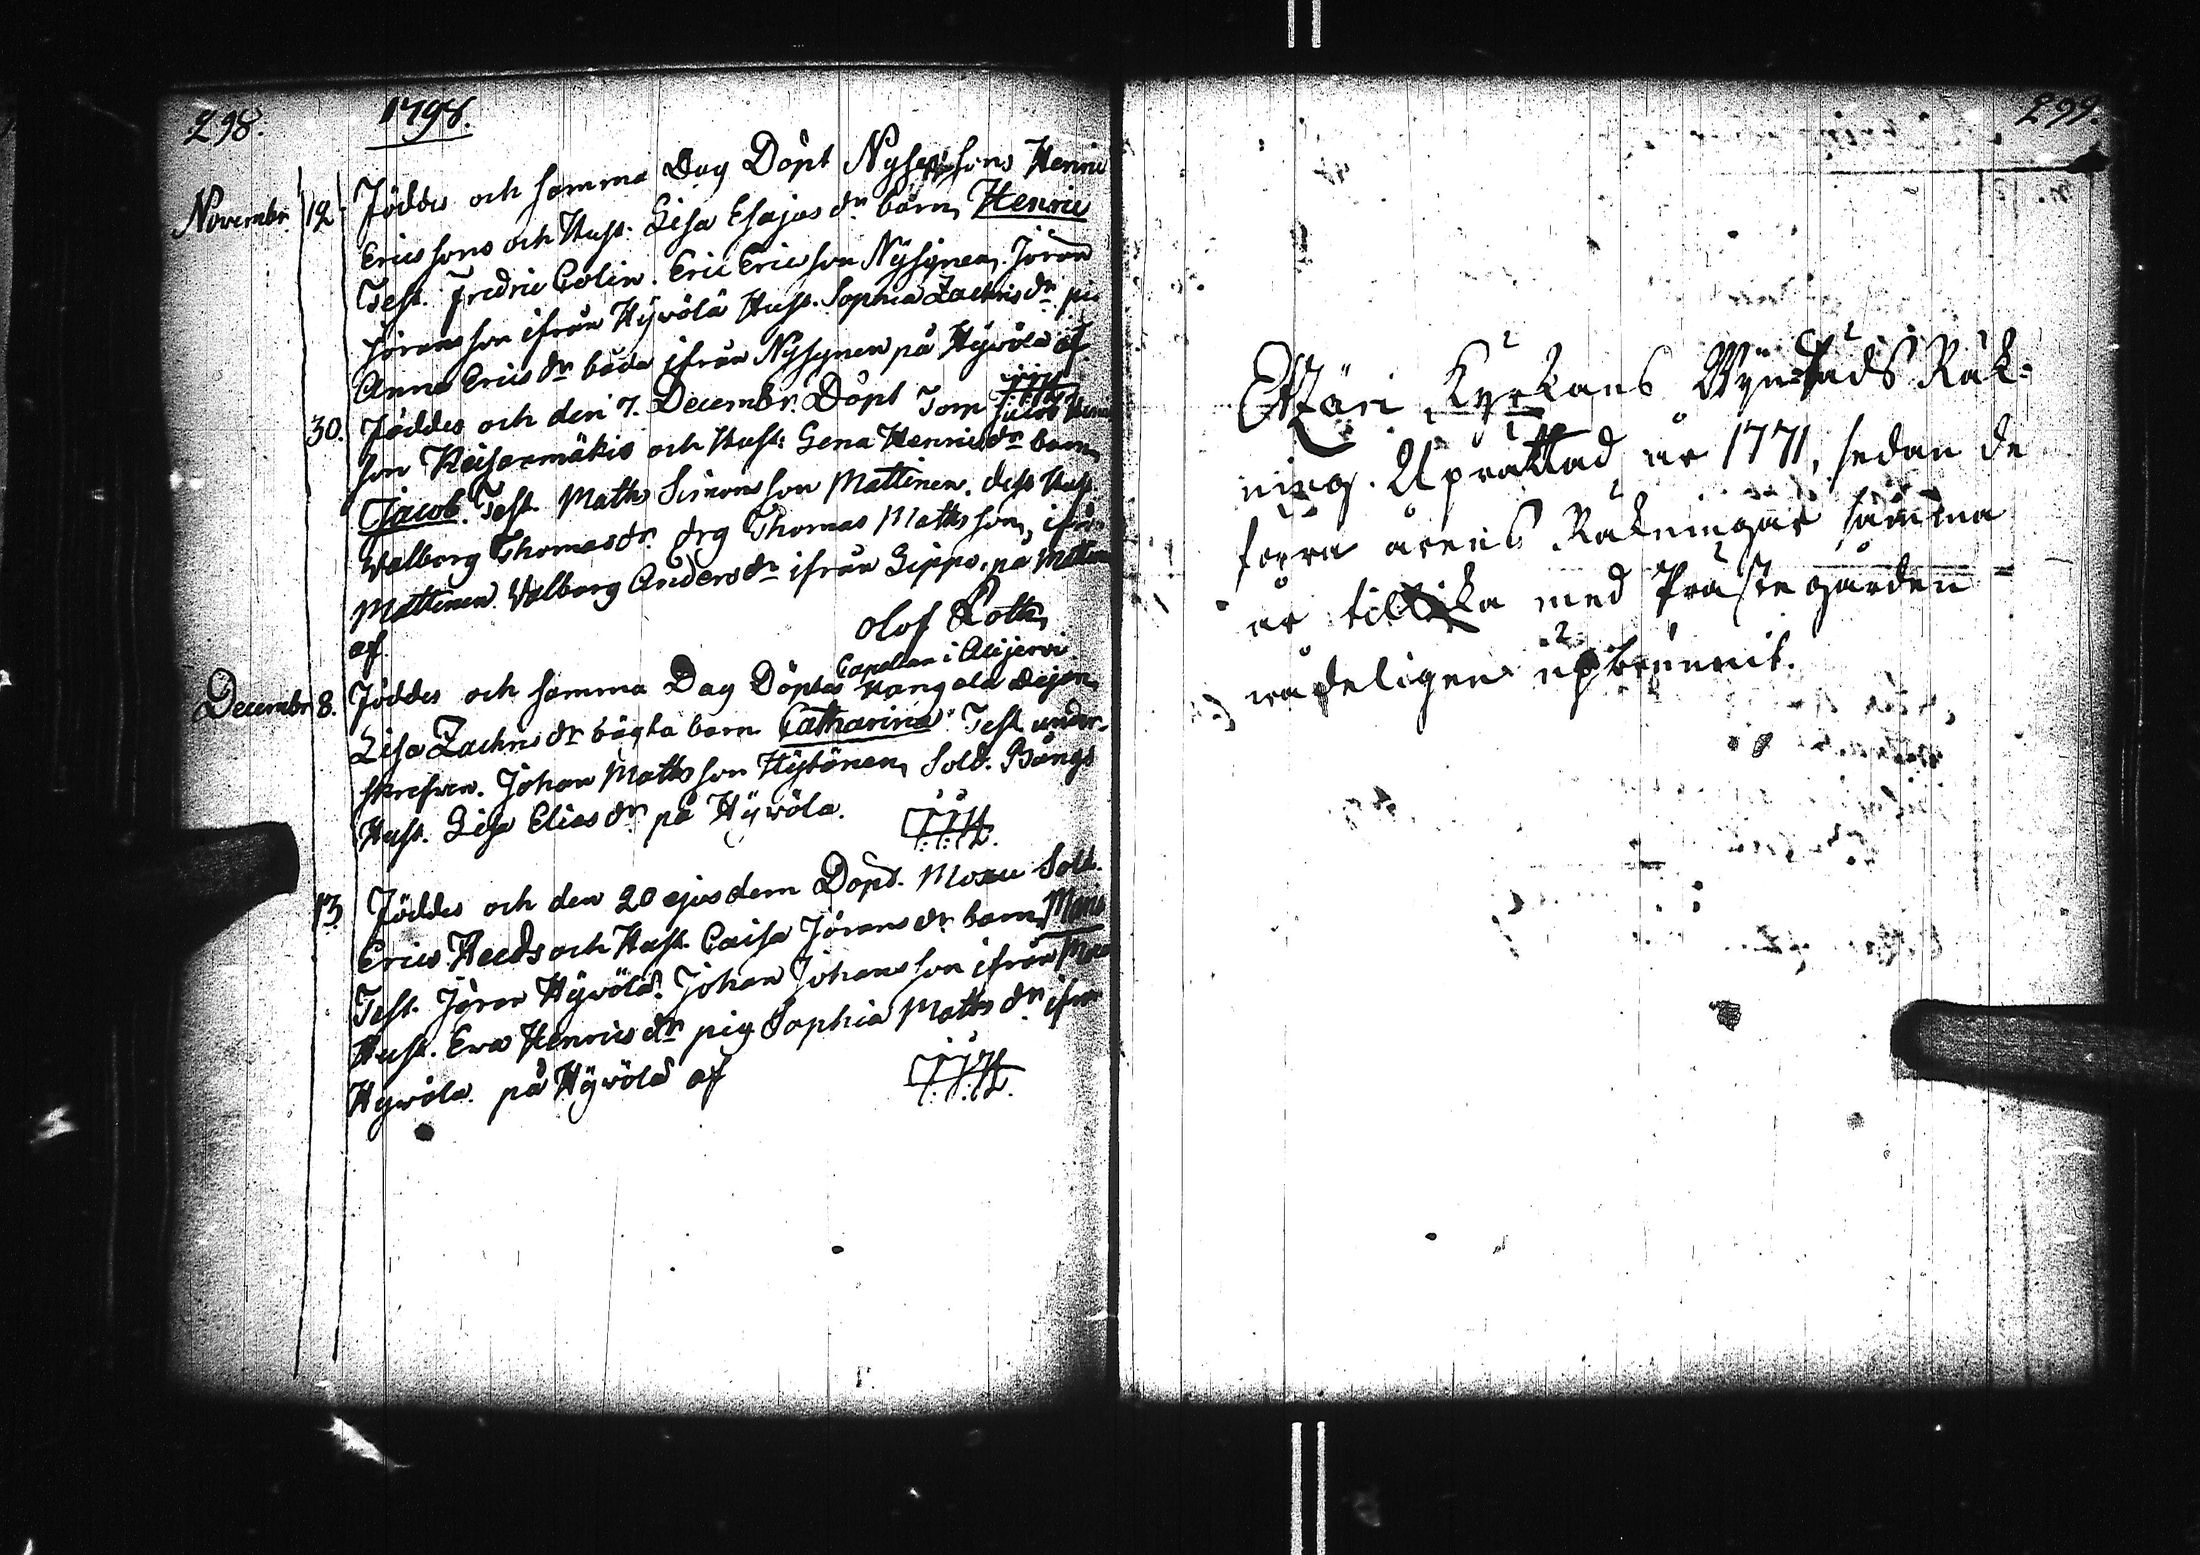 298.
1798.
Novembr. 12. Föddes och samma Dag Döpt Henric
Ericsons och Hust. Lisa Esajas dr barn, Henric
Test. Fredric Colin. Eric Ericson Nysynen, Jöran
Jöransson ifrån Hÿwölä Hust. Sophia Zachris dr. pig
Anna Erics dr båda ifrån Nysynen på Hÿwölä af
30. Föddes och den 7. Decembr. Döpt Torp Jacob
son Keisarmäkis och Hust: Lena Henrics dr barn,
Jacob. Test. Maths Simonsson Mattinen. dess Hust
Walborg Thomas dr. drg Thomas Mathsson, ifrån
Mattinen. Walborg Anders dr ifrån Lippo, på Mattinen
af.
Olof Roth,
Capellan i Acijervi
Decembr. 8. Föddes och samma Dag Döptes Kangola
Lisa Zachris dr oägta barn Catharina. Test. under-
skrefven. Johan Mathsson Hÿtönen, Sold. Bångs
Hust. Lisa Elias dr på Hÿwölä.
J:J:H.
13. Föddes och den 20 ejusdem Döpt. Sold.
Erics Heeds och Hust. Caisa Jörans dr barn,
Test. Jöran Hÿwölä. Johan Johansson ifrån
Hust. Eva Henrics dr pig Sophia Maths dr ifrån
Hÿwölä. på Hÿwölä af
J:J:H.
299.
Kyrkans Räk-
ning. Uprättad år 1771, sedan de
förra årens Räkningar samma
år tillika med Prästegården
wådeligen upbrunnit.